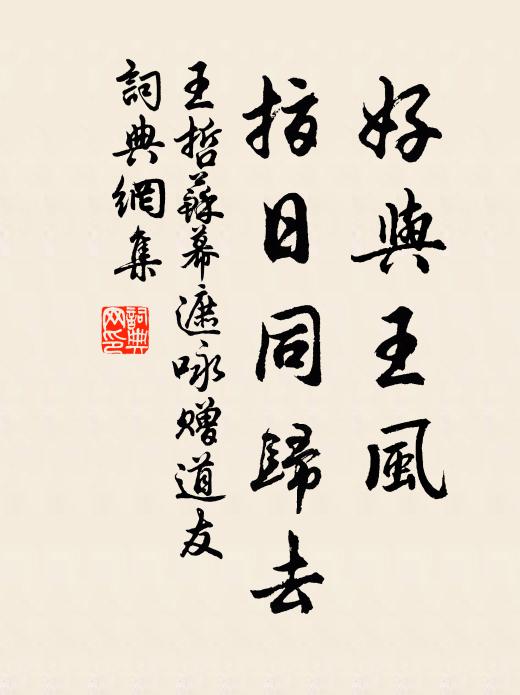 好與王風
指日同歸去
王哲蘇幕遮咏贈道友
詞典網集
詞典网印